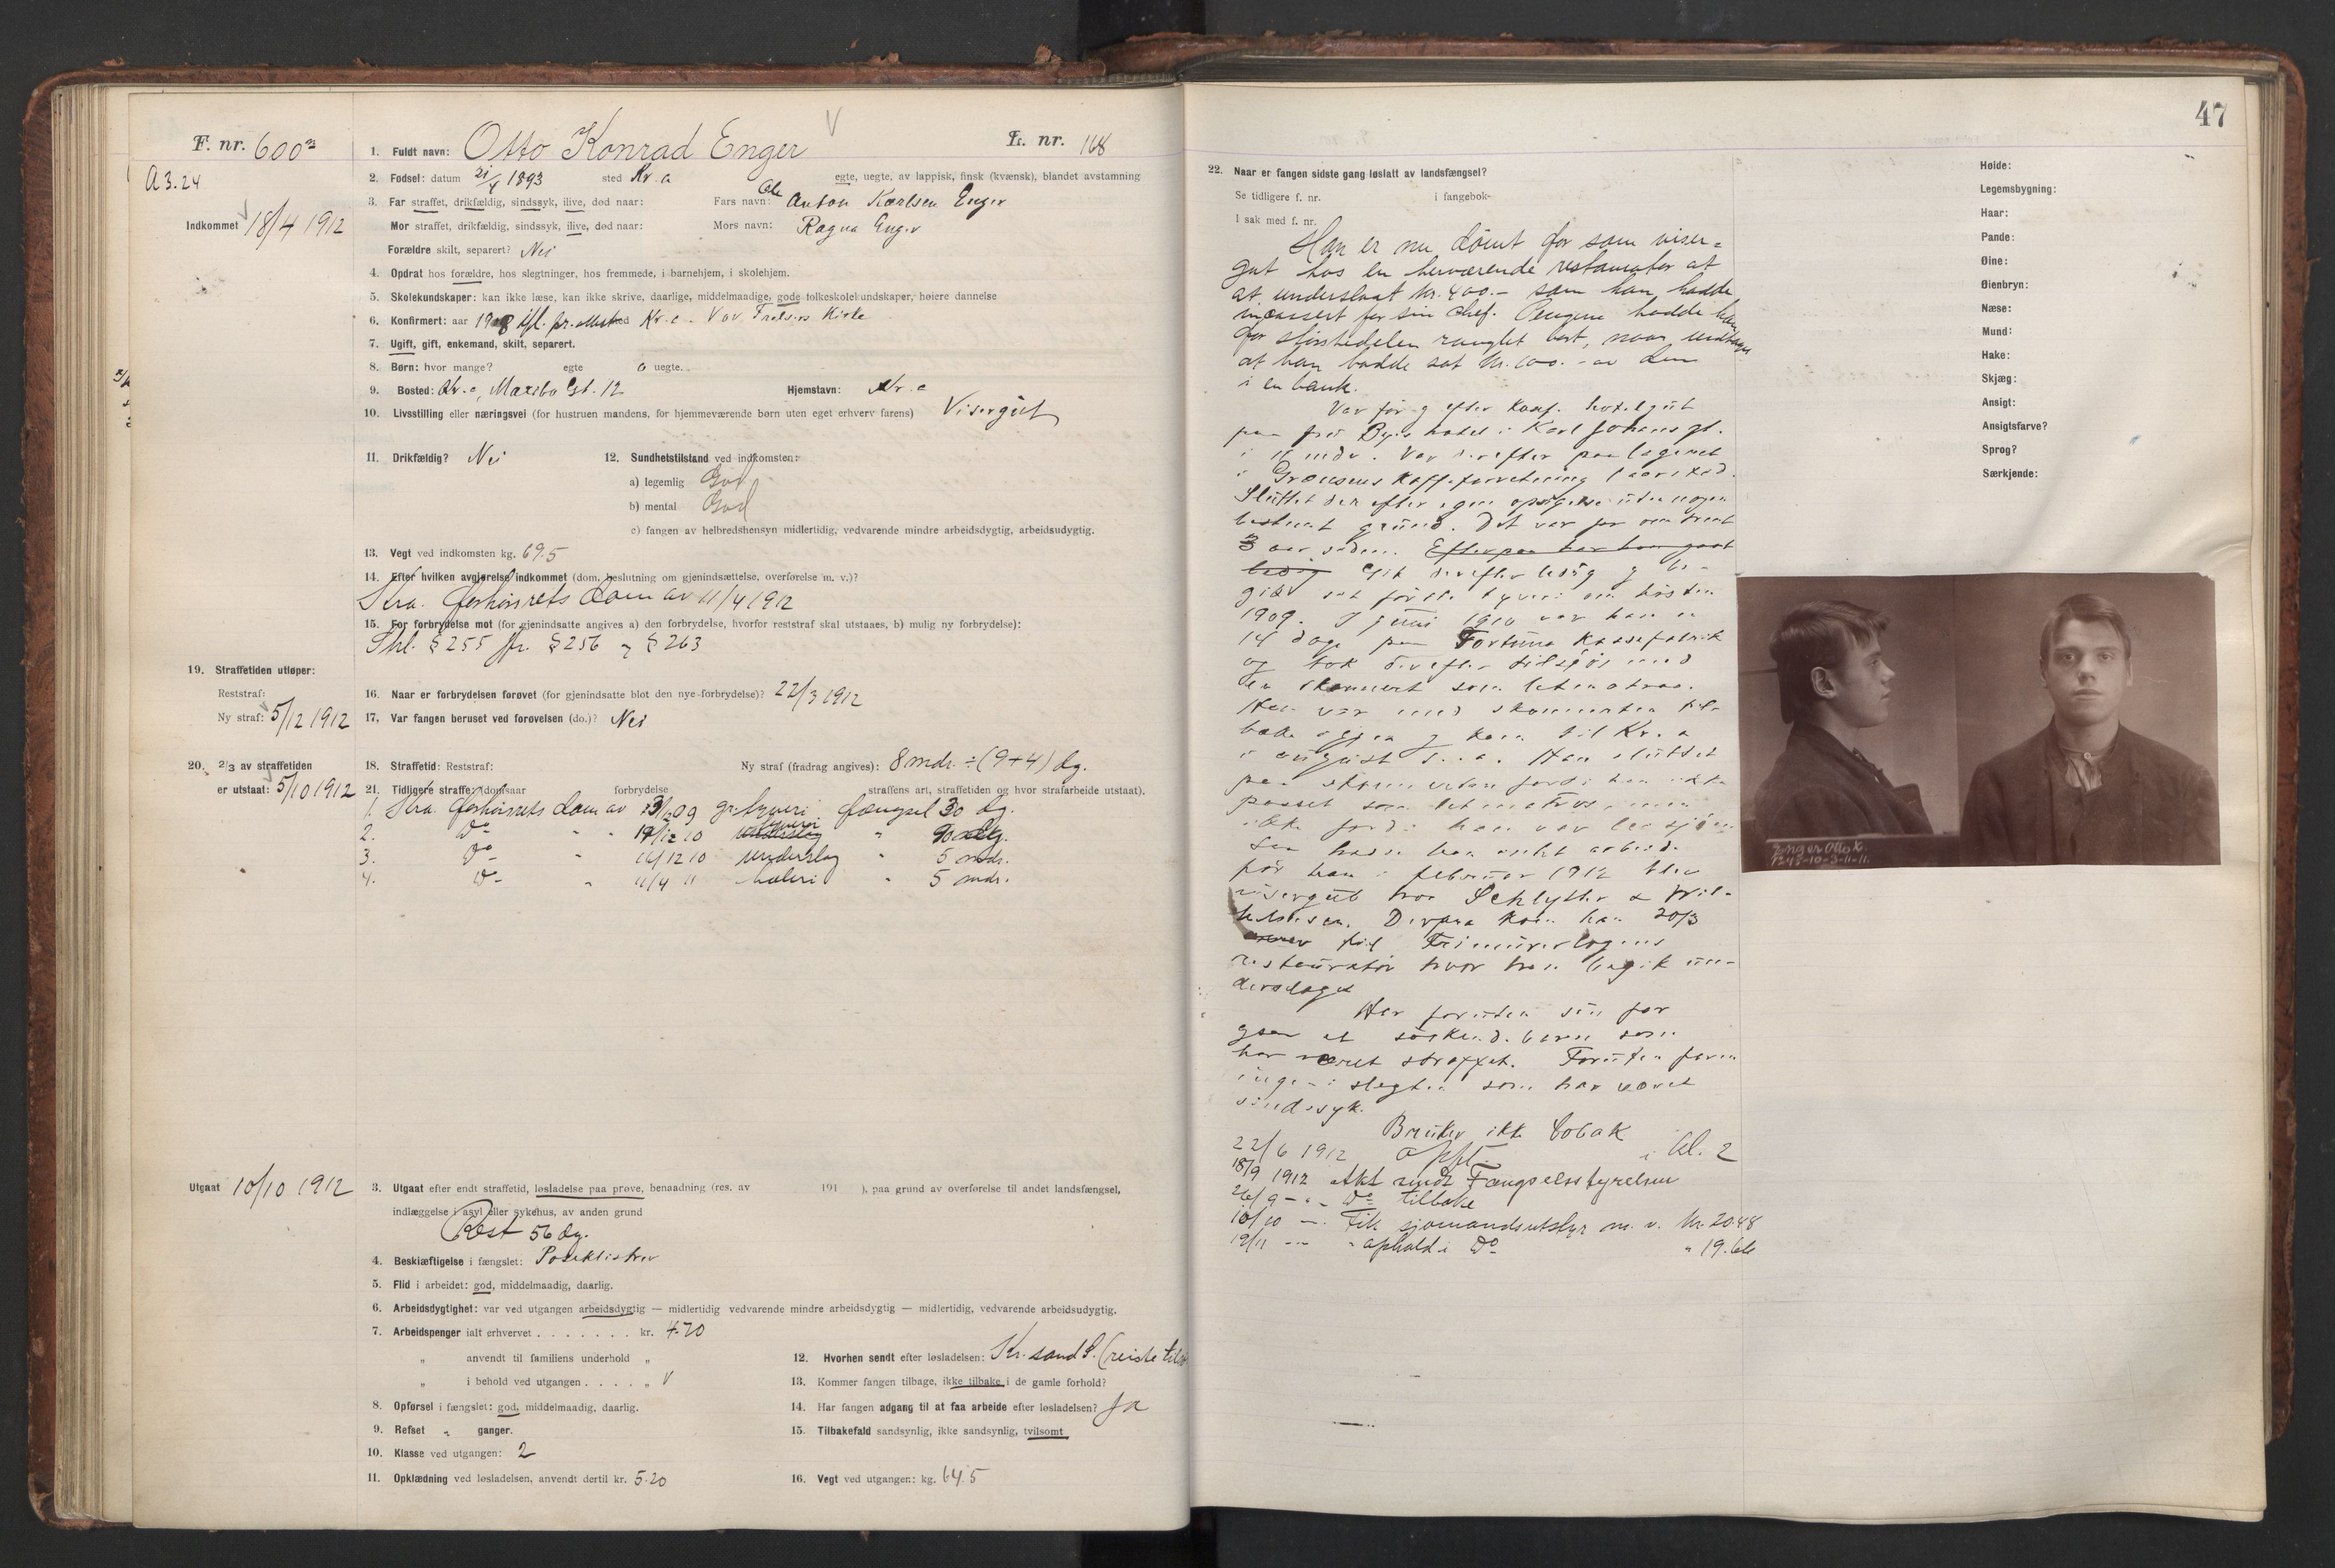 F. nr. 600
A 3.24
Indkommet 18/4 1912
1. Fuldt navn: Otto Konrad Enger
L. nr. 168
2. Fødsel: datum 21/4 1893 sted Kr.a egte, uegte, av lappisk, finsk (kvænsk), blandet avstamning
3. Far straffet, drikfældig, sindssyk, ilive, død naar: Fars navn: Ole Anton Karlsen Enger
Mor straffet, drikfældig, sindssyk, ilive, død naar: Mors navn: Ragna Enger
Forældre skilt, separert? Nei
4. Opdrat hos forældre, hos slegtninger, hos fremmede, i barnehjem, i skolehjem.
5. Skolekundskaper: kan ikke læse, kan ikke skrive, daarlige, middelmaadige, gode folkeskolekundskaper, høiere dannelse
6. Konfirmert: aar 1908 sted Kr.a. Vor Frelsers Kirke
7. Ugift, gift, enkemand, skilt, separert.
8. Børn: hvor mange? egte 0 uegte.
9. Bosted: Kr.a, Maribo Gt. 12 Hjemstavn: Kr.a
10. Livsstilling eller næringsvei (for hustruen mandens, for hjemmeværende børn uten eget erhverv farens) Visergut
11. Drikfældig? Nei 12. Sundhetstilstand ved indkomsten:
a) legemlig God
b) mental God
c) fangen av helbredshensyn midlertidig, vedvarende mindre arbeidsdygtig, arbeidsudygtig.
13. Vegt ved indkomsten kg. 69.5
14. Efter hvilken avgjørelse indkommet (dom, beslutning om gjenindsættelse, overførelse m. v.)?
Kra. forhørsrets dom av 11/4 1912
15. For forbrydelse mot (for gjenindsatte angives a) den forbrydelse, hvorfor reststraf skal utstaaes, b) mulig ny forbrydelse):
Strl. § 255 jfr. § 256 og § 263
19. Straffetiden utløper:
Reststraf:
Ny straf: 5/12 1912
16. Naar er forbrydelsen forøvet (for gjenindsatte blot den nye forbrydelse)? 22/3 1912
17. Var fangen beruset ved forøvelsen (do.)? Nei
20. 2/3 av straffetiden
er utstaat: 5/10 1912
18. Straffetid: Reststraf: Ny straf (fradrag angives): 8 mdr. ÷ (9+4) dg.
21. Tidligere straffe: domsaar forbrydelse straffens art, straffetiden og hvor strafarbeide utstaat).
1. Kra. forhørsrets dom av 09 gr. tyveri fængsel 30 dg.
2. Do - " 10 tyveri " 90 dg.
3. Do - " 16/12 10 underslag " 5 mdr.
4. Do - " 11/4 11 hæleri " 5 mdr.
Utgaat 10/10 1912
3. Utgaat efter endt straffetid, løsladelse paa prøve, benaadning (res. av 191 ), paa grund av overførelse til andet landsfængsel,
indlæggelse i asyl eller sykehus, av anden grund
Rest 56 dg.
4. Beskjæftigelse i fængslet: Poseklistrer
5. Flid i arbeidet: god, middelmaadig, daarlig.
6. Arbeidsdygtighet: var ved utgangen arbeidsdygtig — midlertidig vedvarende mindre arbeidsdygtig — midlertidig, vedvarende arbeidsudygtig.
7. Arbeidspenger ialt erhvervet . . . . . . . kr. 4.70
" anvendt til familiens underhold "
" i behold ved utgangen . . . . "
8. Opførsel i fængslet: god, middelmaadig, daarlig.
9. Refset " ganger.
10. Klasse ved utgangen: 2
11. Opklædning ved løsladelsen, anvendt dertil kr. 5.20
12. Hvorhen sendt efter løsladelsen: Kr.sand S. (reiste
13. Kommer fangen tilbage, ikke tilbake i de gamle forhold?
14. Har fangen adgang til at faa arbeide efter løsladelsen? Ja
15. Tilbakefald sandsynlig, ikke sandsynlig, tvilsomt
16. Vegt ved utgangen: kg. 64.5
47
22. Naar er fangen sidste gang løslatt av landsfængsel?
Se tidligere f. nr. i fangebok
I sak med f. nr.
Han er nu dømt for som viser-
gut hos en herværende restauratør at
at underslaat kr. 400.- som han hadde
incassert for sin chef. Pengene hadde han
for størstedelen ranglet bort, naar undtages
at han hadde sat kr. 100.- av dem
i en bank.
Var før og efter konf. hotelgut
paa hotel i Karl Johans gt.
i 11 mdr. Var derefter paa lageret
i Grænsens Kaffeforretning 1 aars tid.
Sluttet der efter egen opsigelse uten nogen
bestemt grund. Det var for omtrent
3 aar siden. Efterpaa har han gaat
ledig Gik derefter ledig og be-
gik sit første tyveri om høsten
1909. I juni 1910 var han en
14 dage paa Fortuna Kassefabrik
og tok derefter tilsjøs med
en skonnert som letmatros.
Han var med skonnerten til-
bake igjen og kom til Kr.a
i august s. a. Han sluttet
paa skonnerten fordi han ikke
passet som letmatros, men
ikke fordi han var lei sjøen
Saa hadde han endel arbeide
før han i februar 1912 blev
visergut hos Schlytter & Wil-
helmsen. Derfra kom han 20/3
til Frimurerlogens
restauratør hvor han begik un-
derslaget
Har foruten sin far
et søskendebarn som
har været straffet. Foruten faren
ingen i slegten som har været
sindssyk.
Bruker ikke tobak
22/6 1912 Opfl. i kl. 2
18/9 1912 Akt sendt Fængselsstyrelsen
26/9 - " - Do tilbake
10/10 - " Fik sjømandsutstyr m. v. kr. 20.48
12/11 - " - " ophold i Do " 19.66
Høide:
Legemsbygning:
Haar:
Pande:
Øine:
Øienbryn:
Næse:
Mund:
Hake:
Skjæg:
Ansigt:
Ansigtsfarve?
Sprog?
Særkjende:
Enger Otto K.
1248-10-3-11-11.